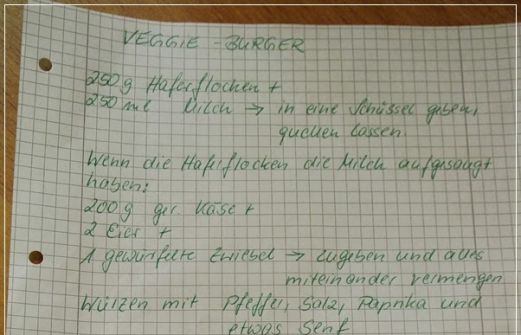 VEGGIE-BURGER
250g Haferflocken +
250 ml Milch → in eine Schüssel geben,
quellen lassen
Wenn die Haferflocken die Milch aufgesaugt
haben:
200g ger. Käse +
2 Eier +
1 gewürfelte Zwiebel → zugeben und alles
miteinander vermengen
Würzen mit Pfeffer, Salz, Paprika und
etwas Senf